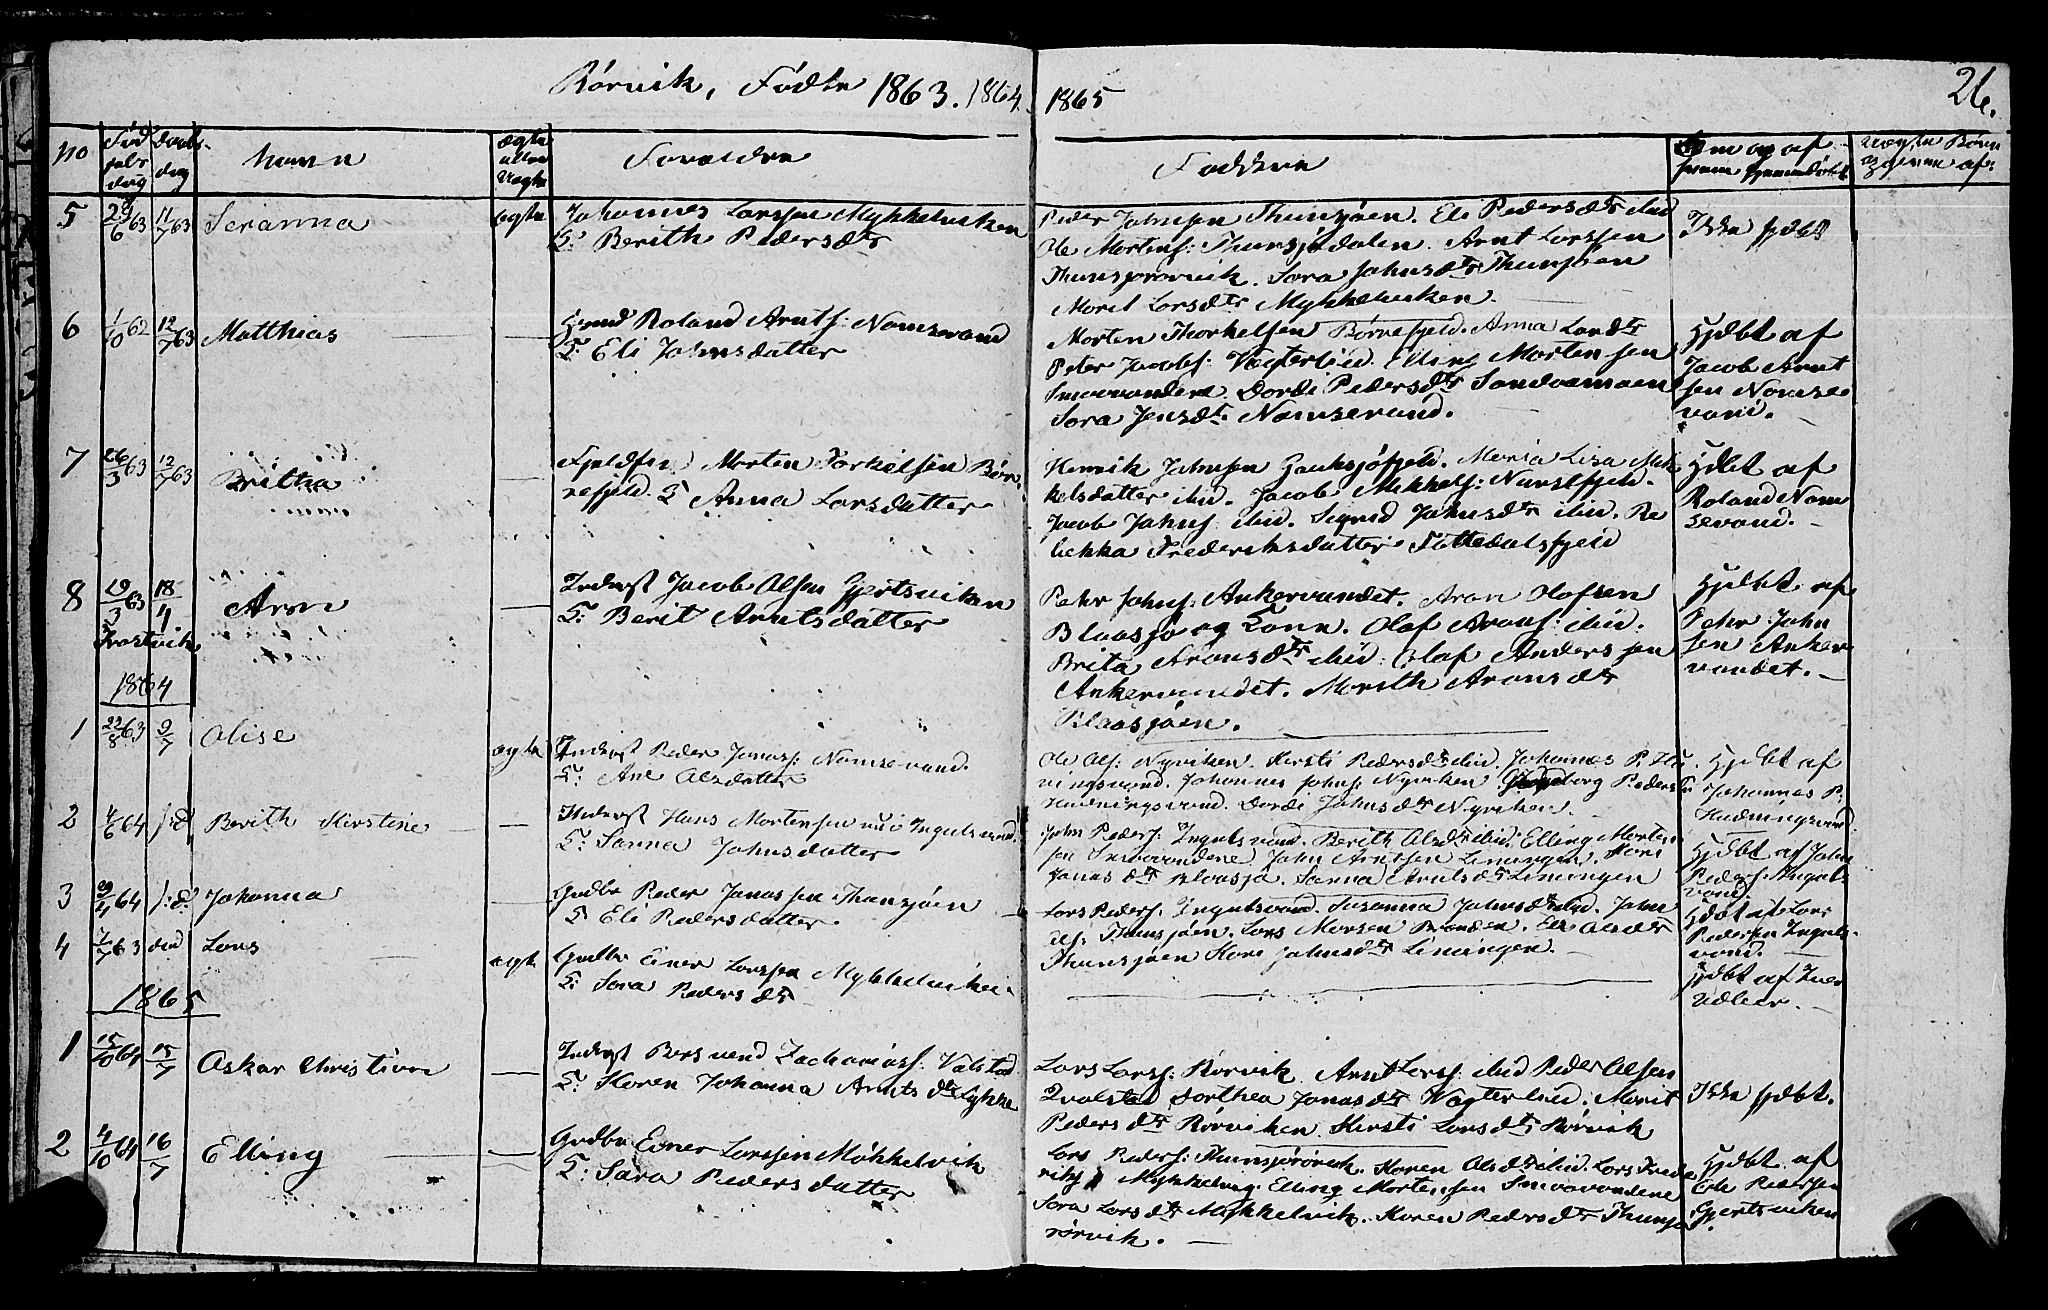 Rörvik, Födte 1863. 1864. 1865
26.
No Födselsdag Daabsdag Navn Ægte eller Uægte Forældre Faddere
5 23/6 63 11/7 63 Seranna ægte Johannes Larssen Mykkelvikken
H: Berith Pedersdtr
Peder Johnsen Thunsjöen. Eli Pedersdtr ibid
Ole Mortens: Thunsjödalen. Arnt Larssen
Thunsjörörvik. Sara Johnsdtr Thunsjöen
Marit Larsdtr Mykkelvikken
Ikke hjdbt
6 1/10 62 12/7 63 Matthias — Roland Arnts: Namsevand
H: Eli Johnsdatter
Morten Thorkelsen Börrefjeld. Anna Larsdtr
Peter Jacobs: Vægterlid. Elling Mortensen
Smaavandene. Dordi Pedersdtr Sandvamoen
Sara Jensdtr. Namsevand.
Hjdbt af
Jacob Arnt
sen Namse
vand.
7 26/3 63 12/7 63 Britha — Morten Torkelsen Bör
refjeld. H Anna Larsdatter
Henrik Johnsen Gauksjöfjeld. Maria Lisa Mik
kelsdatter ibid. Jacob Mikkels: Nurstfjeld.
Jacob Johns: ibid. Sigrid Johnsdtr ibid. Re
bekka Frederiksdatter Tottedalsfjeld
Hjdbt af
Roland Nam
sevand.
8 19/3 63 18/4 Aron — Inderst Jacob Olsen Gjertsviken
Frostvik
H: Berit Arntsdatter
Pehr Johns: Ankervandet. Aron Olofsen
Blaasjö og Kone. Olof Arons: ibid.
Brita Aronsdtr ibid: Olof Anderssen
Ankervandet. Marith Aronsdtr
Blaasjöen.
Hjdbt af
Pehr John
sen Anker
vandet.
1864
1 22/8 63 9/7 Olise ægte Inderst Peder Jonas: Namsevand.
H: Ane Olsdatter
Ole Ols: Nyviken. Kirsti Pedersdtr ibid. Johannes P. Hu
ningsvand. Johannes Johns: Nyviken. Ingeborg Pedersd
Hudningsvand. Dordi Johnsdtr Nyviken.
Hjdbt af
Johannes P.
Hudningsvand
2 4/6 64 s: d Berith Kirstine — Inderst Hans Mortensen nu i Ingulsvand.
H: Sanna Johnsdatter
John Peders: Ingulsvand. Berith Olsdtr ibid. Elling Morten
sen Smaavandene John Arntsen Limingen. Kari
Jonasdtr Blaasjö. Sanna Arntsdtr Limingen
Hjdbt af John
Peders: Inguls
vand
3 29/4 64 s: d: Johanna — Gudbr Peder Jonassen Thunsjöen
H Eli Pedersdatter.
Lars Peders: Ingulsvand. Susanna Johnsdtr ibid. John
Ols: Thunsjöen. Lars Larsen Eli Olsdtr
Thunsjöen Kari Johnsdtr Limingen.
Hjdbt af Lars
Pedersen Inguls
vand.
4 7/7 63 död Lars ægte Gudbr Einer Larssen Mykkelviken
H: Sara Pedersdtr
Hjdbt af
1865
1 15/10 64 15/7 Oskar Christian — Inderst Bersvend Zacharias: Valstad
H: Karen Johanna Arntsdtr Lykke
Lars Lars: Rörvik. Arnt Lars: ibid Peder Olsen
Qvalstad Dorthea Jonasdtr Vægterlid. Marit
Pedersdtr Rörviken. Kirsti Larsdtr Rörvik
Ikke hjdbt.
2 4/10 64 16/7 Elling — Gudbr Einer Larssen Mökkelvik
H: Sara Pedersdatter
Lars Peders: Thunsjörörvik. Karen Olsdtr ibid. Lars Frede
riks Mykkelvig. Elling Mortensen Smaavandene
Sara Larsdtr Mykkelvik. Karen Pedersdtr Thunsjö
rörvik.
Hjdbt af
Ole Pedersen
Gjertsviken